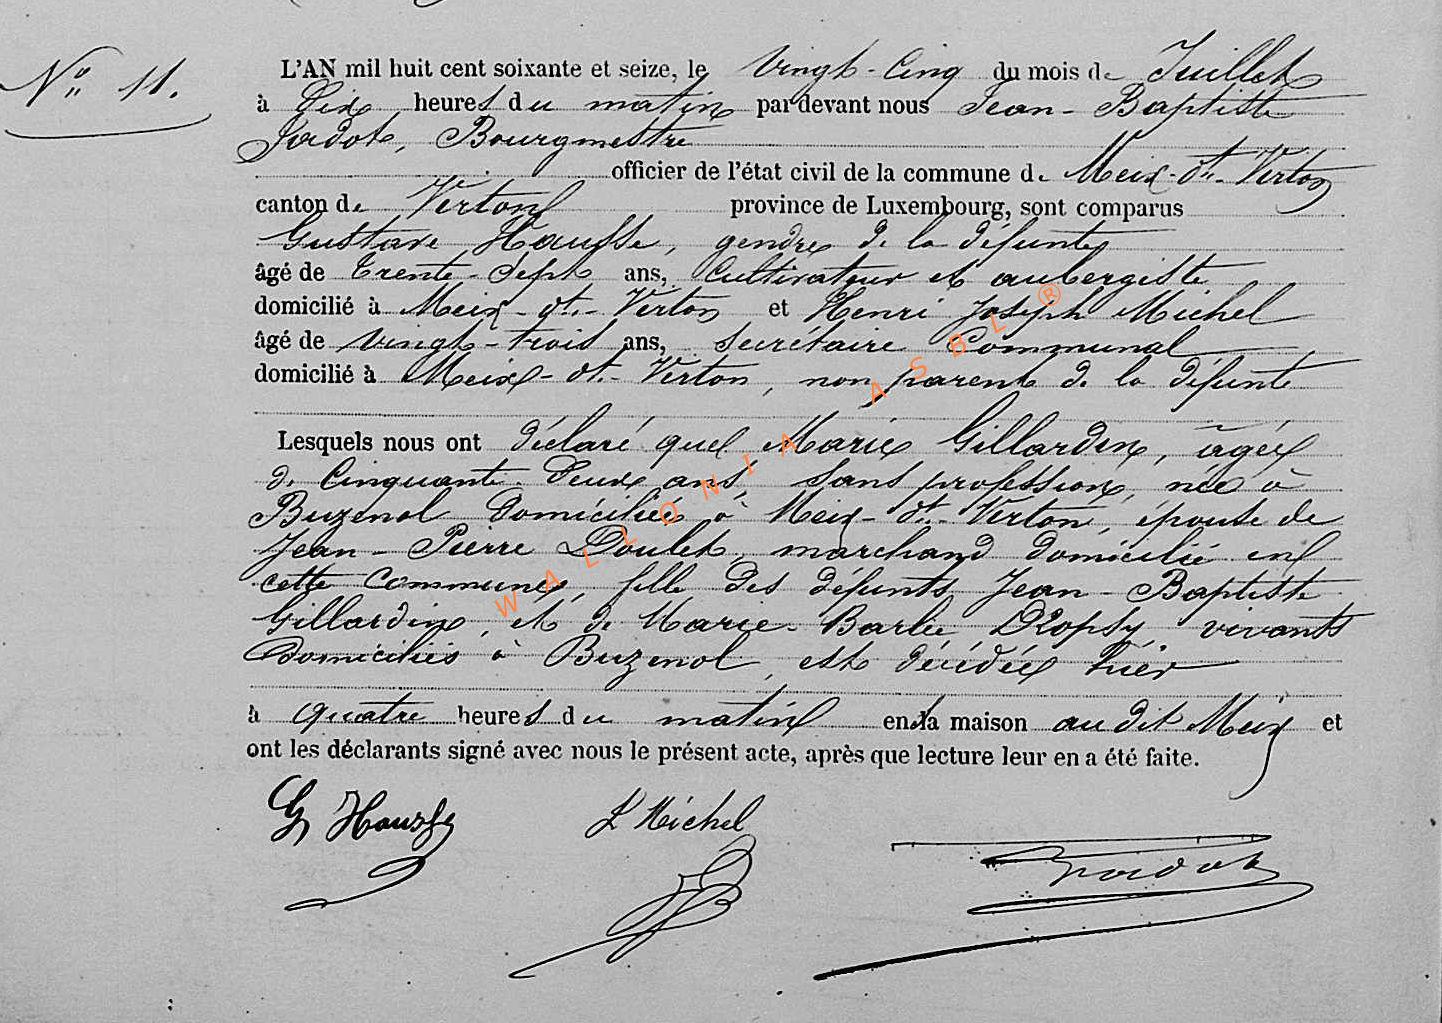 N° 11.
L'AN mil huit cent soixante et seize, le vingt-cinq du mois de Juillet
à dix heures du matin par devant nous Jean-Baptiste
Jadot, Bourgmestre
officier de l'état civil de la commune de Meix-dt-Virton
canton de Virton province de Luxembourg, sont comparus
Gustave Hausse, gendre de la défunte
âgé de trente-sept ans, cultivateur et aubergiste
domicilié à Meix-dt-Virton et Henri Joseph Michel
âgé de vingt-trois ans, secrétaire communal
domicilié à Meix-dt-Virton, non parent de la défunte
Lesquels nous ont déclaré que Marie Gillardin, âgée
de cinquante-deux ans, sans profession, née à
Buzenol domiciliée à Meix-dt-Virton, épouse de
Jean-Pierre Doulet, marchand domicilié en
cette commune, fille des défunts Jean-Baptiste
Gillardin, et de Marie-Barbe Dropsy, vivants
domiciliés à Buzenol, est décédée hier
à quatre heures du matin en sa maison au dit Meix et
ont les déclarants signé avec nous le présent acte, après que lecture leur en a été faite.
G Hausse Michel Jadot
WALLONIA ASBL ®